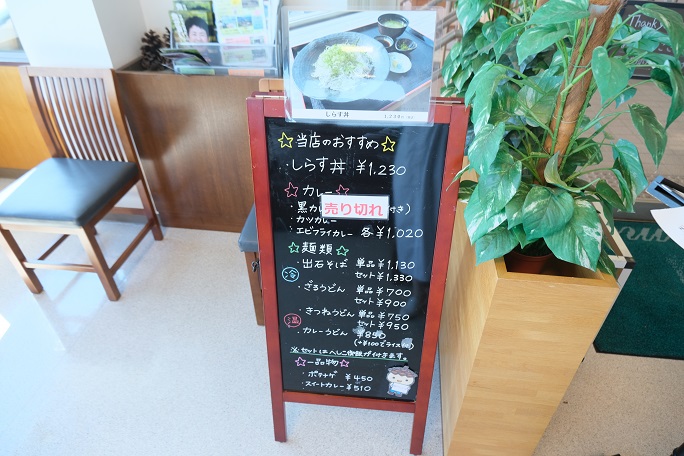 しらす丼
☆当店のおすすめ☆
・しらす丼 ¥1.230
☆カレー☆
・黒カレ
売り切れ
付き)
・カツカレー
・エビフライカレー 各¥1,020
☆麺類☆
冷
・出石そば 単品¥1,130
セット¥1,330
・ざるうどん 単品¥700
セット¥900
温
・きつねうどん 単品¥750
セット¥950
・カレーうどん ¥850
(+¥100でライス
※セットはへしこ御飯が付きます。
☆一品物☆
・ポテナゲ ¥450
・スイートカレー ¥510
Thank